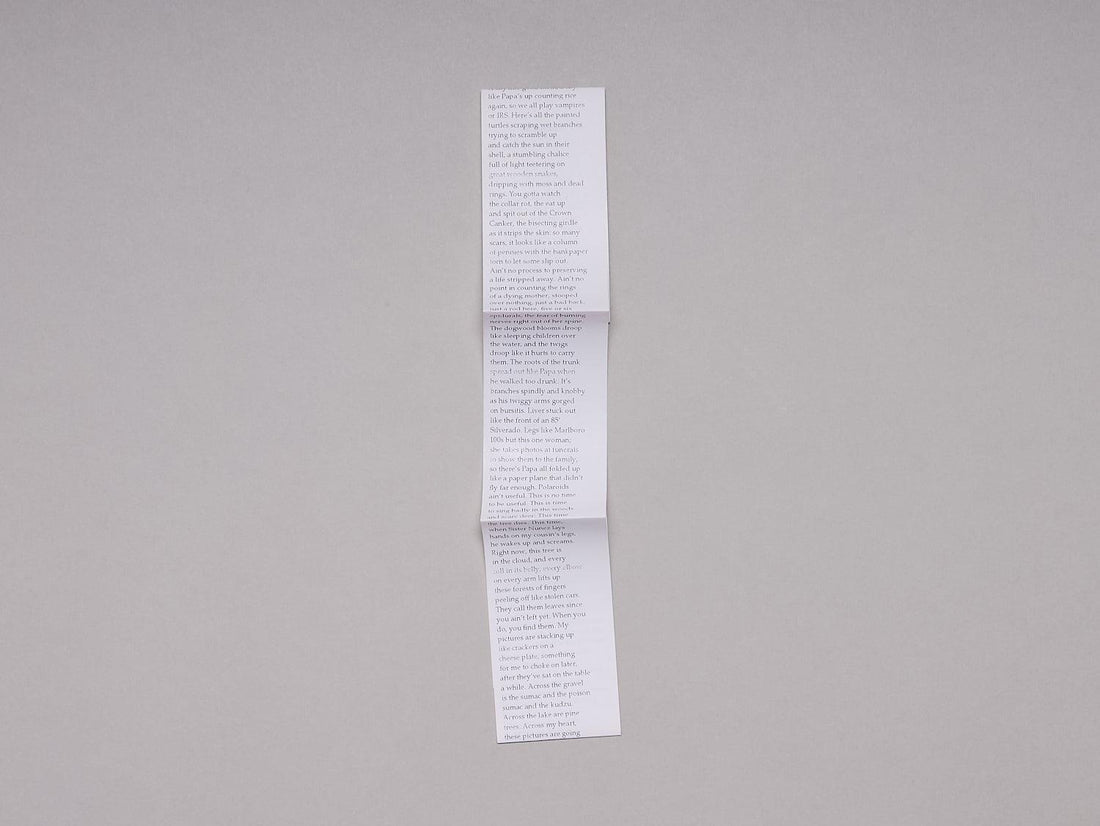 like Papa's up counting rice
again, so we all play vampires
or IRS. Here's all the painted
turtles scraping wet branches
trying to scramble up
and catch the sun in their
shell, a stumbling chalice
full of light teetering on
great wooden snakes,
dripping with moss and dead
rings. You gotta watch
the collar rot, the eat up
and spit out of the Crown
Canker, the bisecting girdle
as it strips the skin: so many
scars, it looks like a column
of pennies with the bank paper
torn to let some slip out.
Ain't no process to preserving
a life stripped away. Ain't no
point in counting the rings
of a dying mother, stooped
over nothing, just a bad back,
just a rod here, five or six
epidurals, the fear of burning
nerves right out of her spine.
The dogwood blooms droop
like sleeping children over
the water, and the twigs
droop like it hurts to carry
them. The roots of the trunk
spread out like Papa when
he walked too drunk. It's
branches spindly and knobby
as his twiggy arms gorged
on bursitis. Liver stuck out
like the front of an 85'
Silverado. Legs like Marlboro
100s but this one woman;
she takes photos at funerals
to show them to the family,
so there's Papa all folded up
like a paper plane that didn't
fly far enough. Polaroids
ain't useful. This is no time
to be useful. This is time
to sing badly in the woods
and scare deer. This time
the tree dies. This time,
when Sister Nunez lays
hands on my cousin's legs,
he wakes up and screams.
Right now, this tree is
in the cloud, and every
roll in its belly, every elbow
on every arm lifts up
these forests of fingers
peeling off like stolen cars.
They call them leaves since
you ain't left yet. When you
do, you find them. My
pictures are stacking up
like crackers on a
cheese plate; something
for me to choke on later,
after they've sat on the table
a while. Across the gravel
is the sumac and the poison
sumac and the kudzu.
Across the lake are pine
trees. Across my heart,
these pictures are going